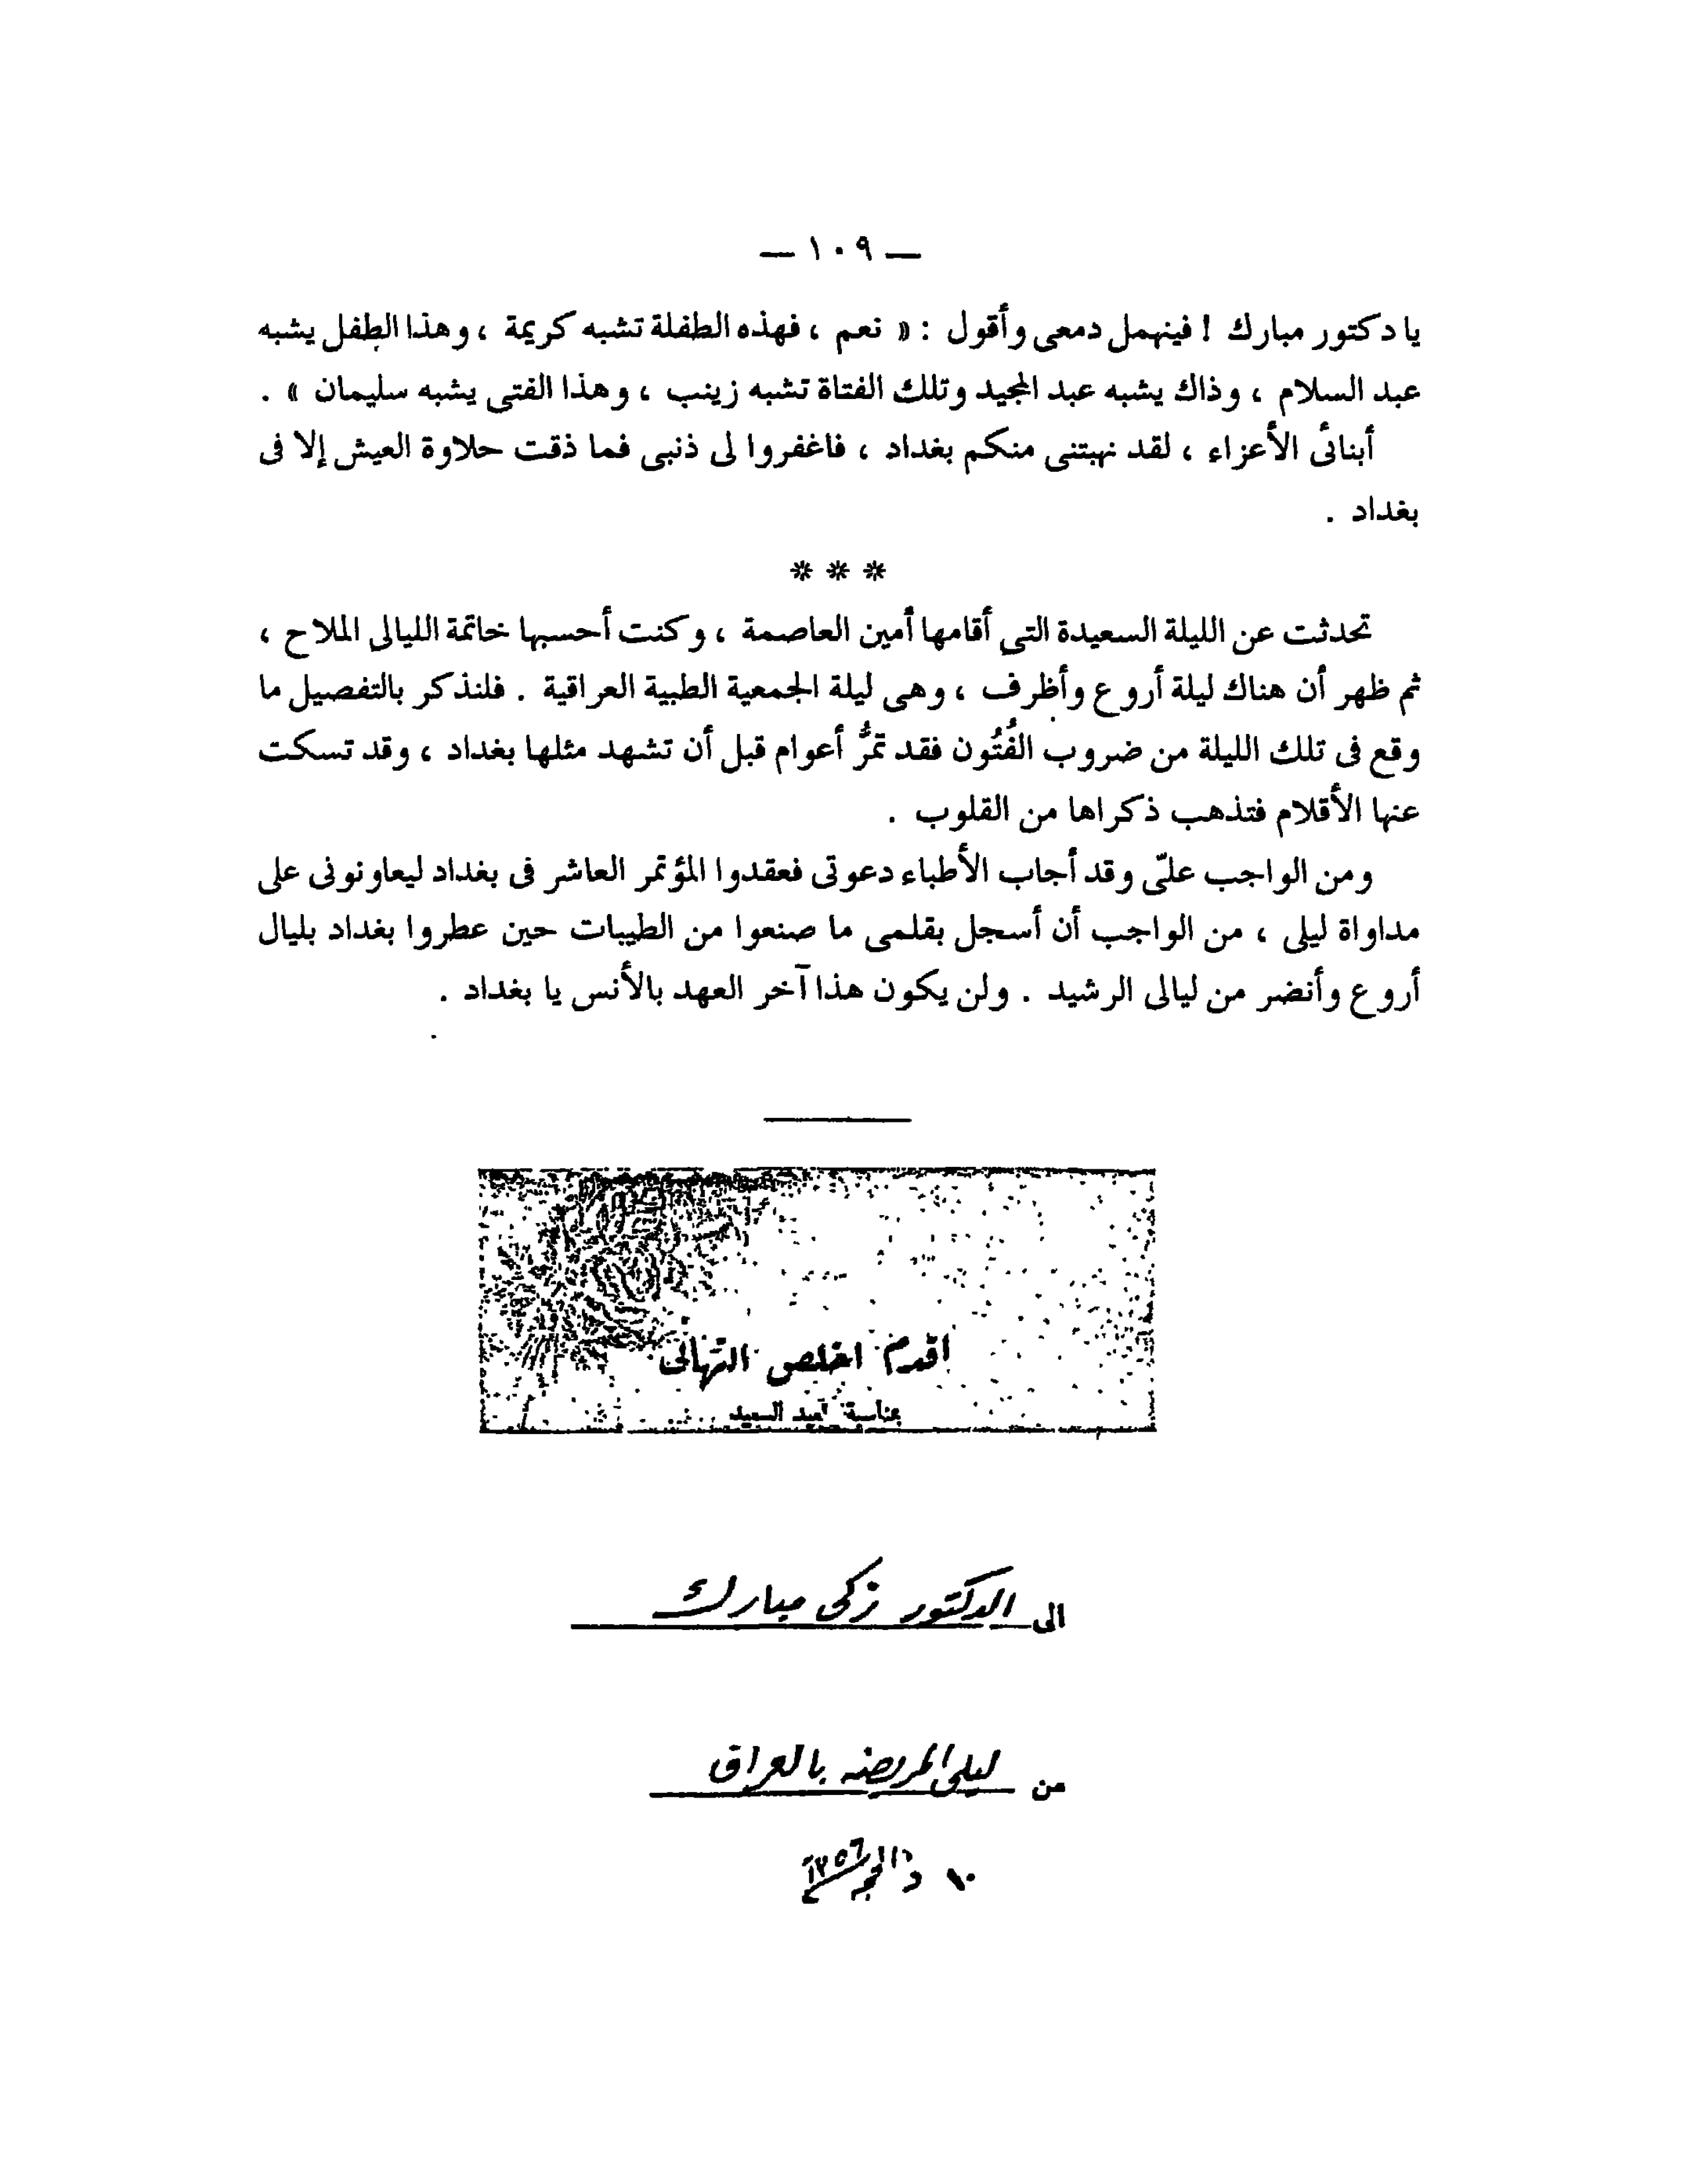 — ١٠٩ —
يا دكتور مبارك ! فينهمل دمعى وأقول : « نعم ، فهذه الطفلة تشبه كريمة ، وهذا الطفل يشبه
عبد السلام ، وذاك يشبه عبد المجيد وتلك الفتاة تشبه زينب ، وهذا الفتى يشبه سليمان » .
أبنائى الأعزاء ، لقد نهبتنى منكم بغداد ، فاغفروا لى ذنبى فما ذقت حلاوة العيش إلا فى
بغداد .
* * *
تحدثت عن الليلة السعيدة التى أقامها أمين العاصمة ، وكنت أحسبها خاتمة الليالى الملاح ،
ثم ظهر أن هناك ليلة أروع وأظرف ، وهى ليلة الجمعية الطبية العراقية . فلنذكر بالتفصيل ما
وقع فى تلك الليلة من ضروب الفُتُون فقد تمرُّ أعوام قبل أن تشهد مثلها بغداد ، وقد تسكت
عنها الأقلام فتذهب ذكراها من القلوب .
ومن الواجب علىّ وقد أجاب الأطباء دعوتى فعقدوا المؤتمر العاشر فى بغداد ليعاونونى على
مداواة ليلى ، من الواجب أن أسجل بقلمى ما صنعوا من الطيبات حين عطروا بغداد بليال
أروع وأنضر من ليالى الرشيد . ولن يكون هذا آخر العهد بالأنس يا بغداد .
اقدم اخلص التهانى
بمناسبة العيد السعيد
الى الدكتور زكى مبارك
من ليلى المريضه بالعراق
١٠ ذ الحجه ١٣٥٦